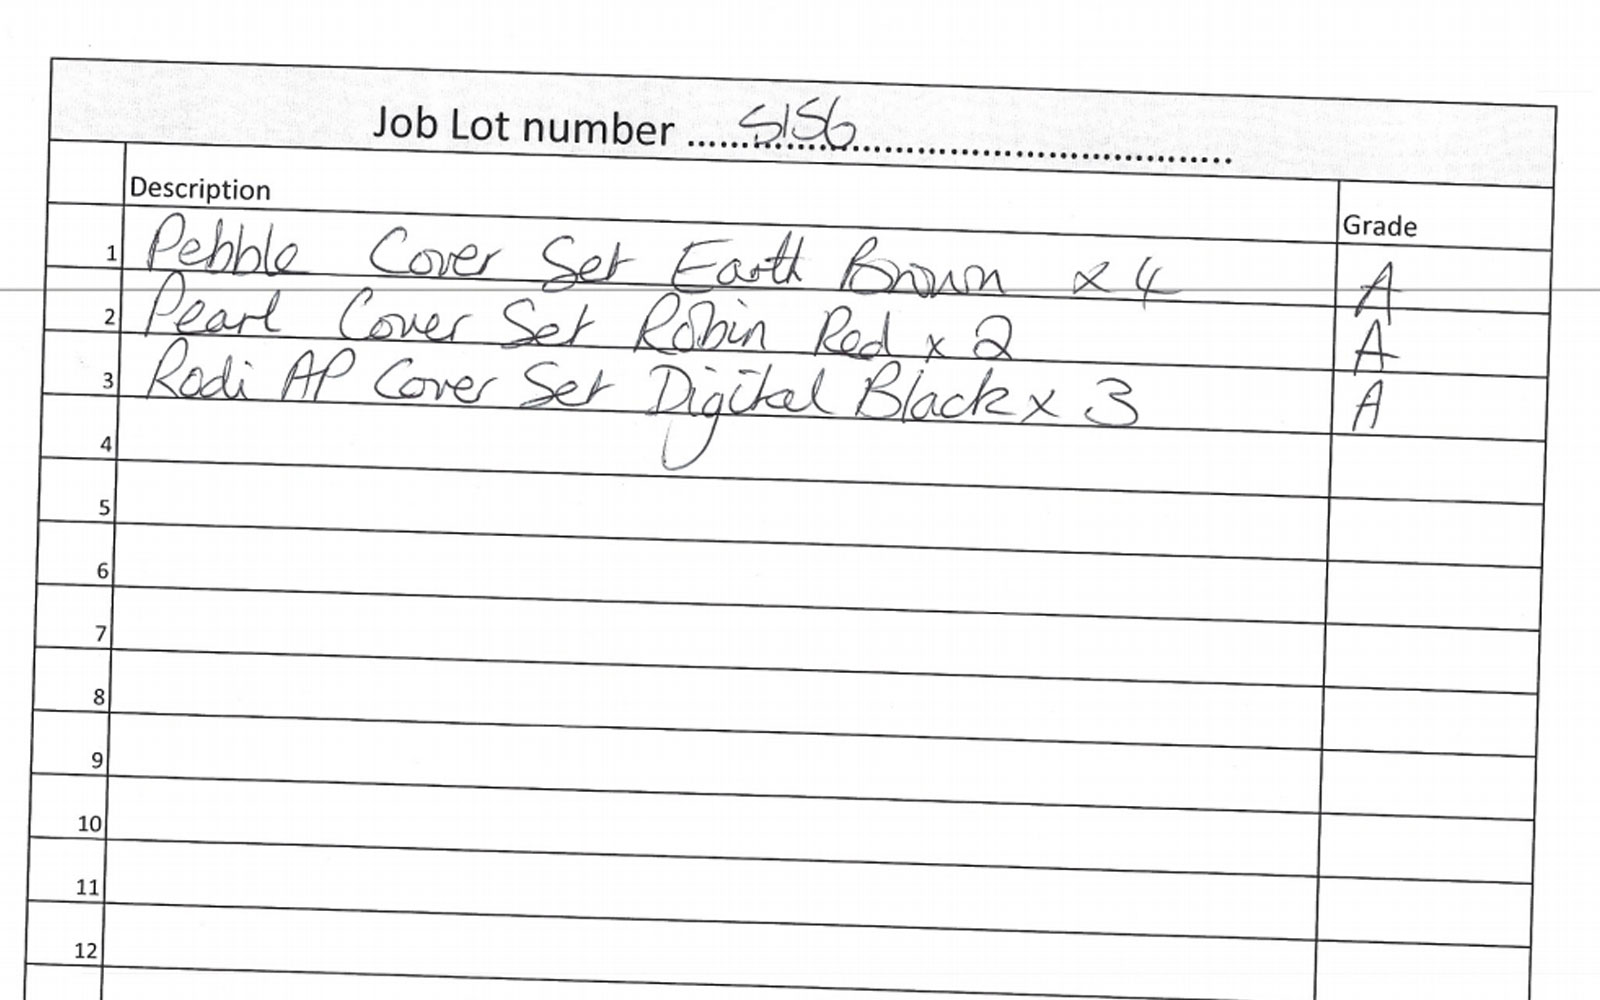 Job Lot number ..... 5156 .....
Description Grade
1 Pebble Cover Set Earth Brown x 4 A
2 Pearl Cover Set Robin Red x 2 A
3 Rodi AP Cover Set Digital Black x 3 A
4
5
6
7
8
9
10
11
12